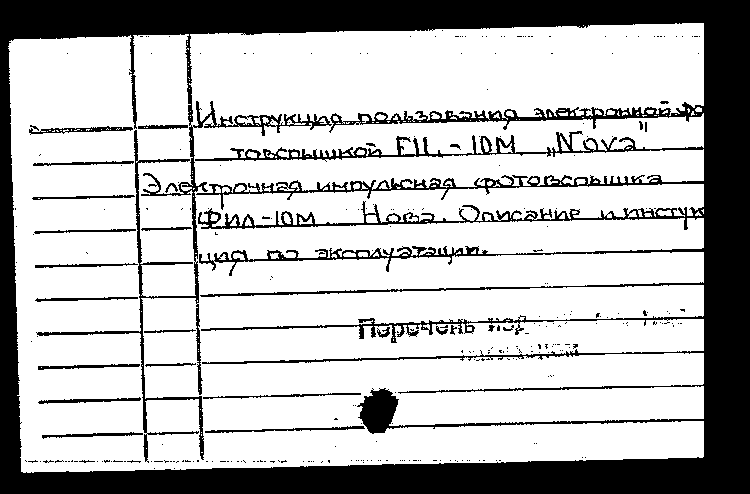 Инструкция пользования электронной фо
товспышкой FIL-10M „Nova"
Электронная импульсная фотовспышка
Фил-10м. Нова. Описание и инстук
ция по эксплуатации.
Перечень